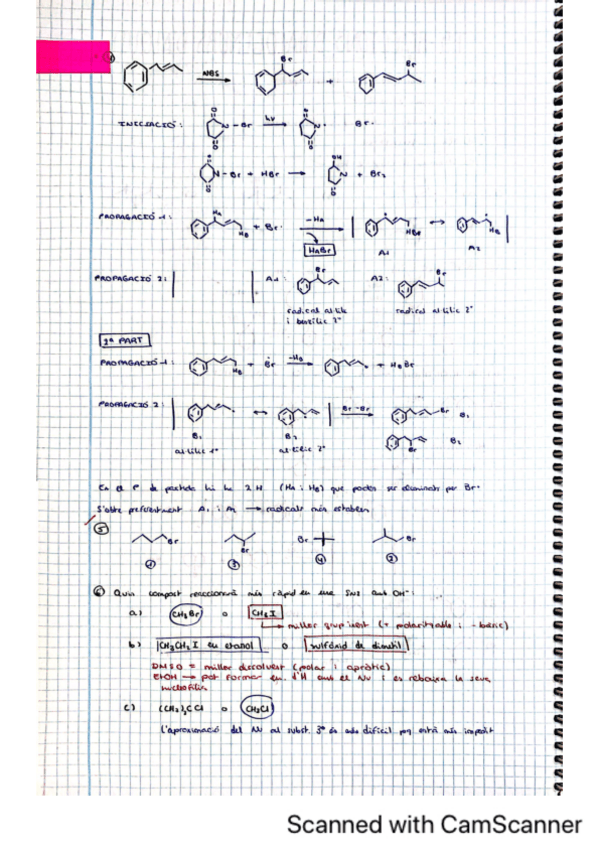 ④
Br
Br
NBS
+
INICIACIÓ:
O
N - Br
hν
O
N·
Br·
N - Br + HBr → OH N + Br₂
PROPAGACIÓ 1: Ha Hb + Br· -Ha HaBr Hb ↔ Hb
A1 A2
PROPAGACIÓ 2: A1: Br A2: Br
radical al·lílic radical al·lílic 2º
i benzílic 2º
2ª PART
PROPAGACIÓ 1: Hb + Br -Hb + HbBr
PROPAGACIÓ 2: ↔ Br-Br Br B₁
B₁ B₂ Br B₂
al·lílic 1º al·lílic 2º
En el P de partida hi ha 2 H (Ha i Hb) que poden ser eliminats per Br·
S'obté preferentment A₁ i A₂ → radicals més estables
⑤
Br Br Br Br
① ③ ④ ②
⑥ Quin compost reaccionarà més ràpid en una SN2 amb OH⁻:
a) CH₃Br o CH₃I
→ millor grup ixent (+ polaritzable i - bàsic)
b) CH₃CH₂I en etanol o sulfòxid de dimetil
DMSO = millor dissolvent (polar i apròtic)
EtOH → pot formar en. d'H amb el Nu i es rebaixa la seva
nucleofília
c) (CH₃)₃CCl o CH₃Cl
L'aproximació del Nu al subst. 3º és més difícil pq està més impedit
Scanned with CamScanner